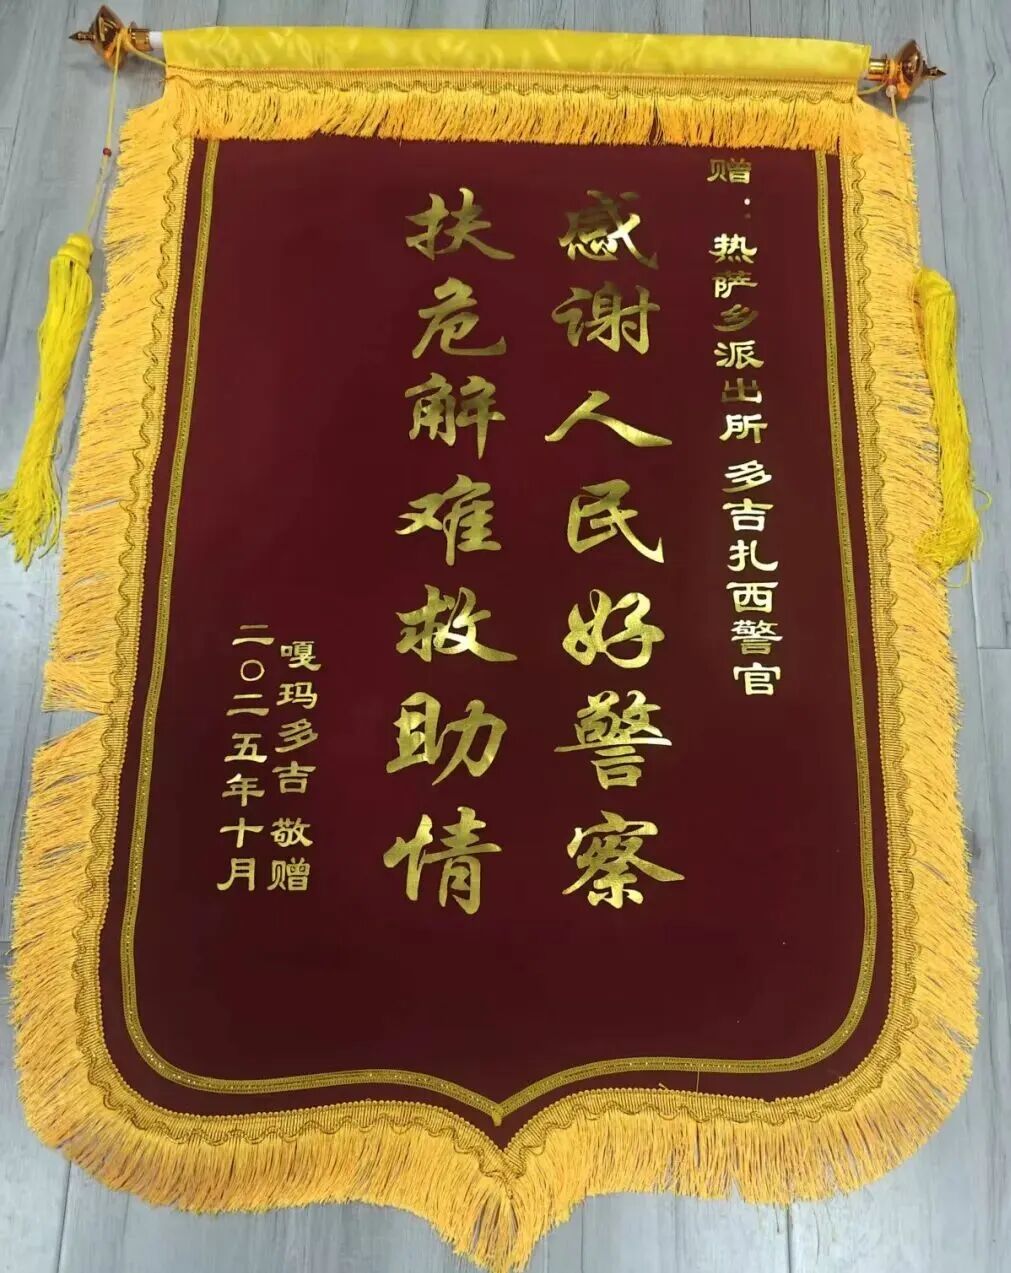 赠：热萨乡派出所 多吉扎西警官
感谢人民好警察
扶危解难救助情
嘎玛多吉 敬赠
二〇二五年十月